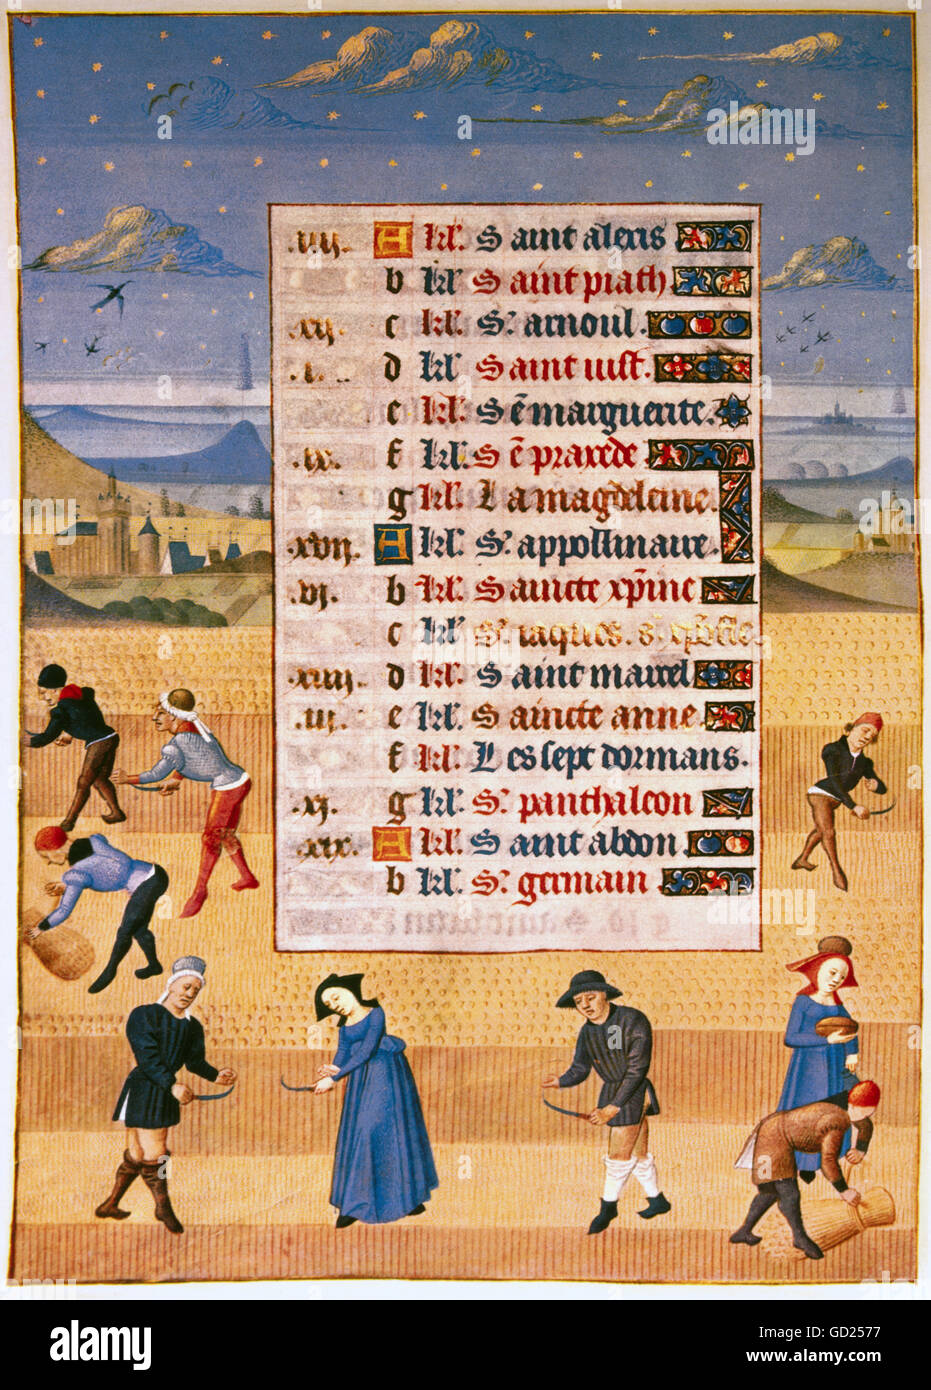 .iiij. A kl'. Saint alexis
b kl'. Saint piath
.xij. c kl'. S' arnoul.
.i. d kl'. Saint iust.
e kl'. S ē marguerite.
.ix. f kl'. S ē praxede
g kl'. La magdeleine.
.xvij. A kl'. S' appollinaire.
.vj. b kl'. Saincte xp̄ine
c kl'. S' iaques. s'
.xiiij. d kl'. Saint marcel
.iij. e kl'. Saincte anne
f kl'. Les sept dormans.
.xj. g kl'. S' panthaleon
.xix. A kl'. Saint abdon
b kl'. S' germain
a alamy stock photo
alamy
Image ID: GD2577
www.alamy.com